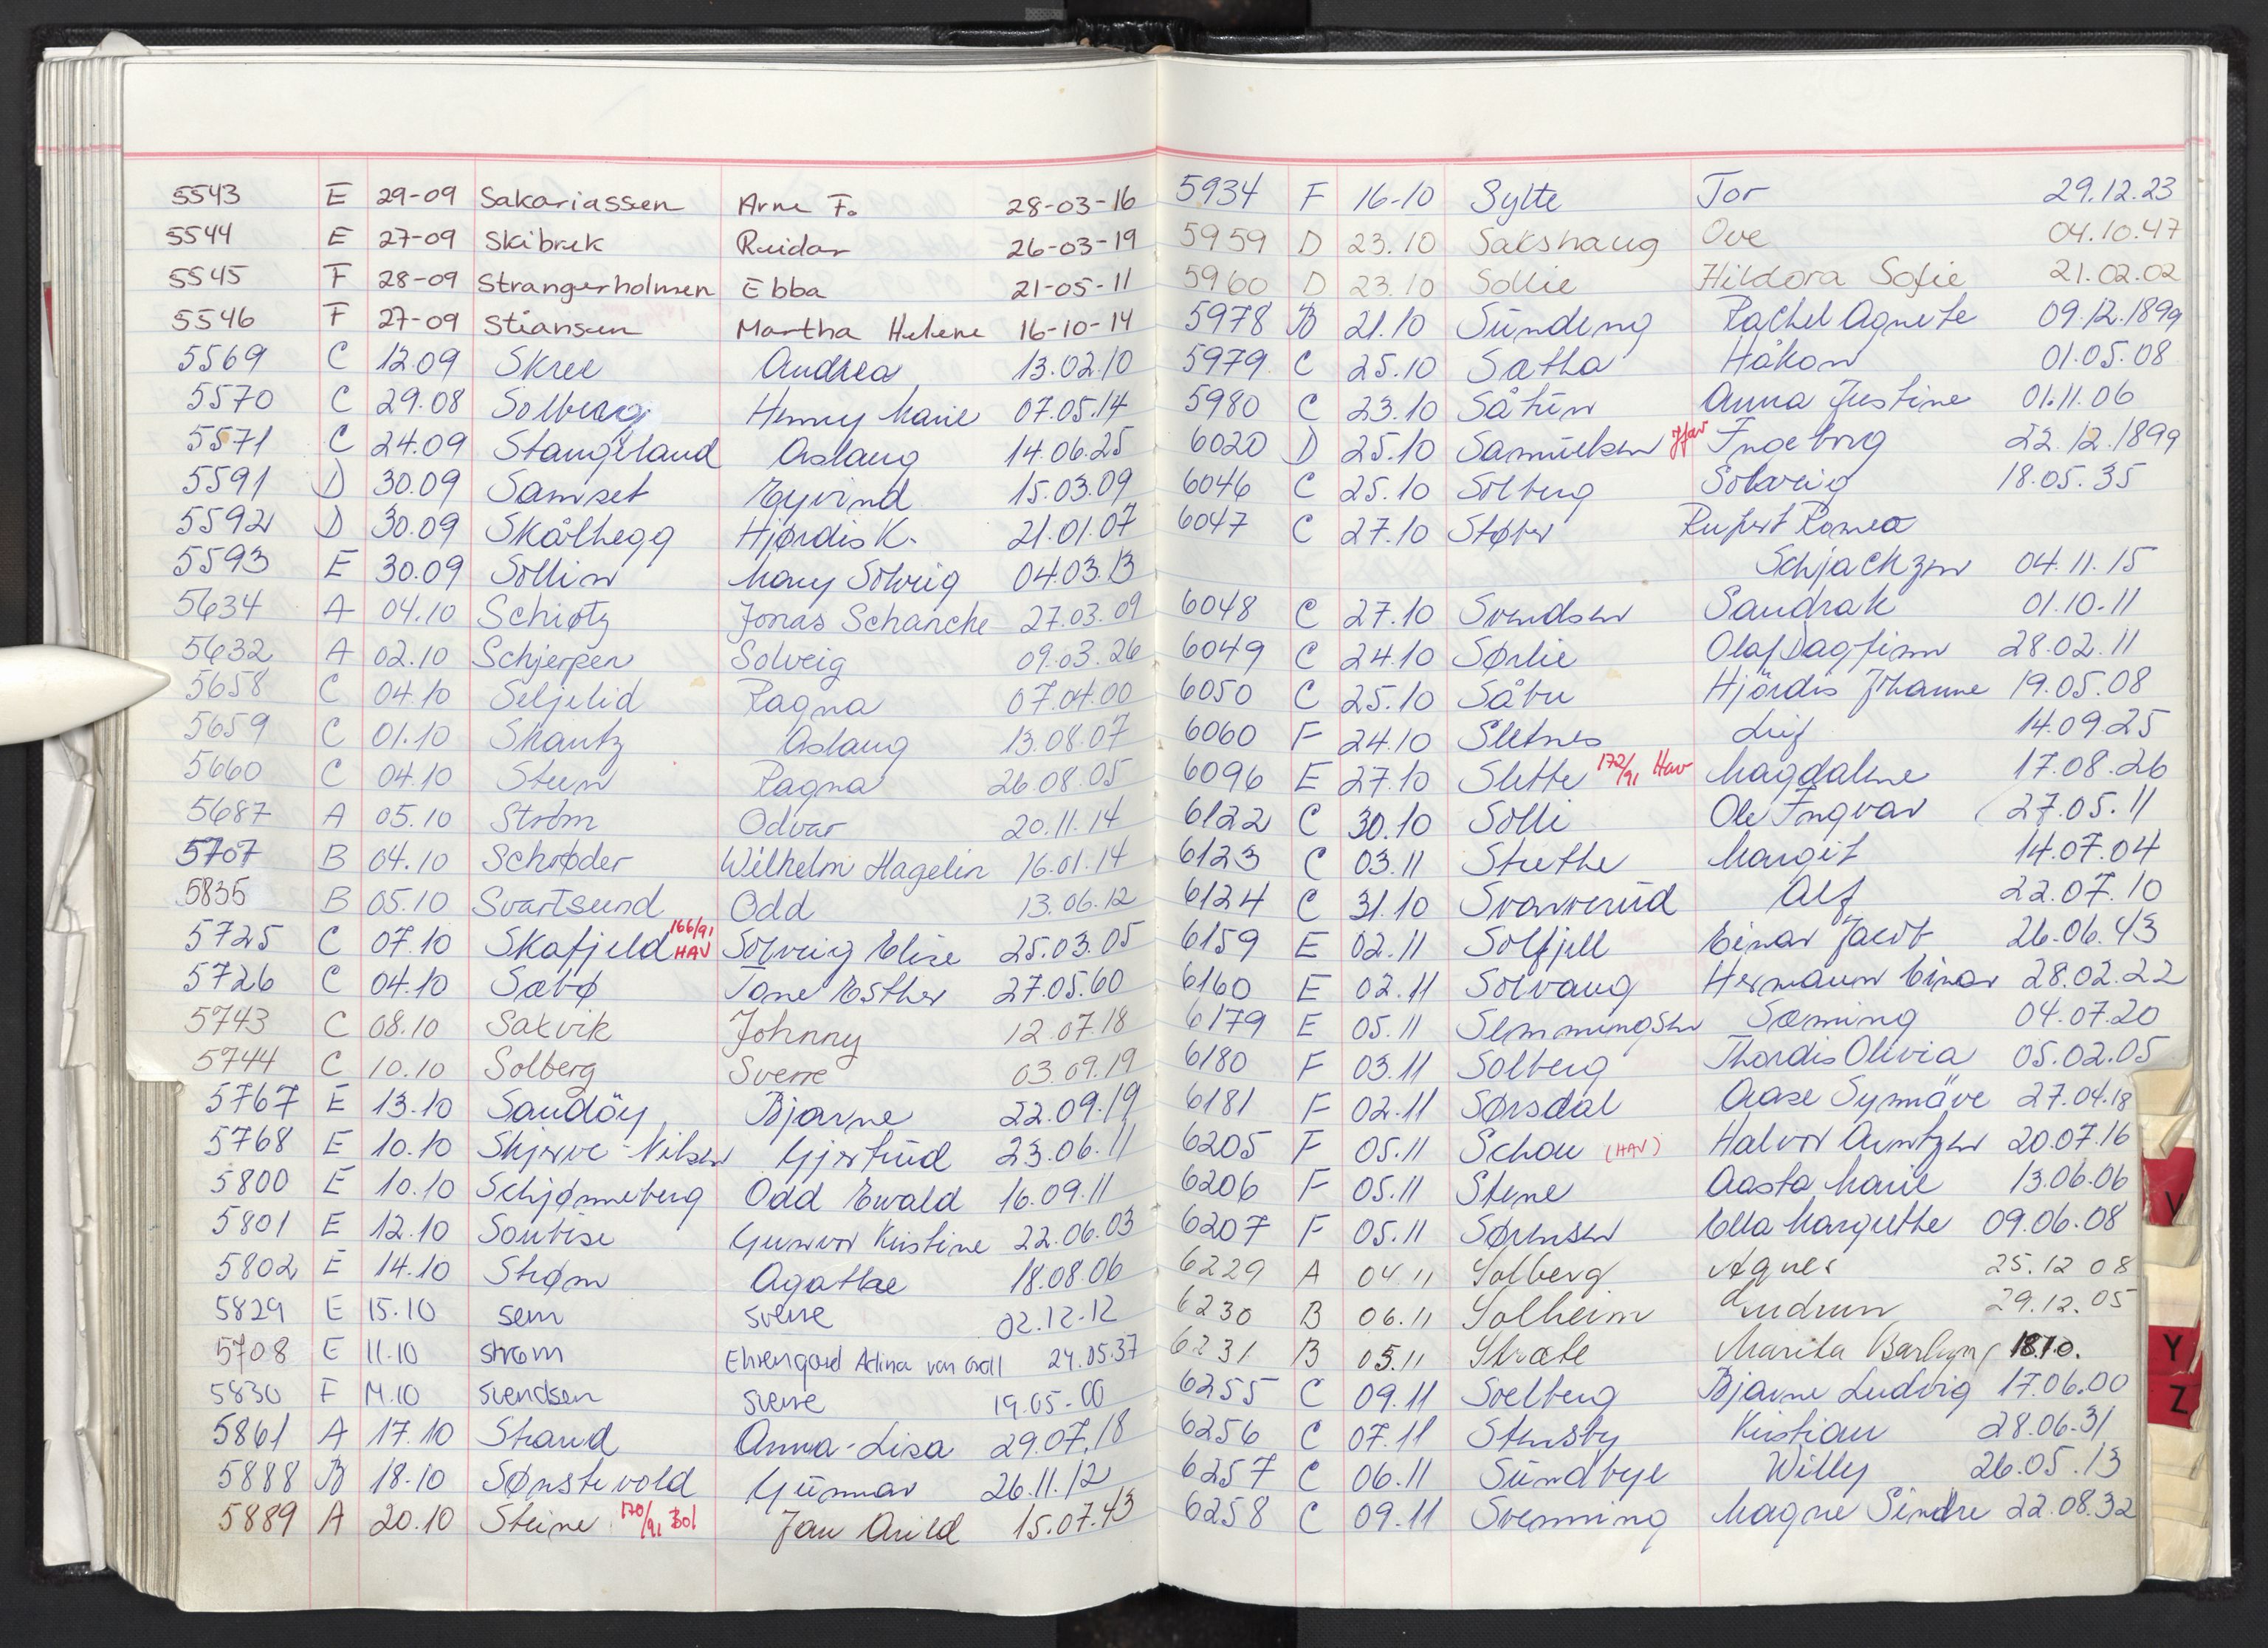 5543 E 29-09 Sakariassen Arne F. 28-03-16
5544 E 27-09 Skibrek Reidar 26-03-19
5545 F 28-09 Strangerholmen Ebba 21-05-11
5546 F 27-09 Stiansen Martha Helene 16-10-14
5569 C 12.09 Skree Andrea 13.02.10
5570 C 29.08 Solberg Henny Marie 07.05.14
5571 C 24.09 Stangeland Aslaug 14.06.25
5591 D 30.09 Samset Eyvind 15.03.09
5592 D 30.09 Skålhegg Hjørdis K. 21.01.07
5593 E 30.09 Sollien Mary Solveig 04.03.13
5634 A 04.10 Schiøtz Jonas Schancke 27.03.09
5632 A 02.10 Schjerpen Solveig 09.03.26
5658 C 04.10 Seljelid Ragna 07.04.00
5659 C 01.10 Skantz Aslaug 13.08.07
5660 C 04.10 Steen Ragna 26.08.05
5687 A 05.10 Strøm Odvar 20.11.14
5707 B 04.10 Schrøder Wilhelm Hagelin 16.01.14
5835 B 05.10 Svartsund Odd 13.06.12
5725 C 07.10 Skafjeld 166/91 HAV Solveig Elise 25.03.05
5726 C 04.10 Sæbø Tone Esther 27.05.60
5743 C 08.10 Saxvik Johnny 12.07.18
5744 C 10.10 Solberg Sverre 03.09.19
5767 E 13.10 Sandöy Bjarne 22.09.19
5768 E 10.10 Skjerve-Nilsen Gjertrud 23.06.11
5800 E 10.10 Schjønneberg Odd Ewald 16.09.11
5801 E 12.10 Soubise Gunvor Kristine 22.06.03
5802 E 14.10 Strøm Agathe 18.08.06
5829 E 15.10 Sem Sverre 02.12-12
5708 E 11.10 Strøm Ehrengard Adina von 24.05.37
5830 F 14.10 Svendsen Sverre 19.05-00
5861 A 17.10 Strand Anna-Lisa 29.07.18
5888 B 18.10 Sønstevold Gunnar 26.11.12
5889 A 20.10 Steine 170/91 Bol Jan Arild 15.07.43
5934 F 16-10 Sylte Tor 29.12.23
5959 D 23.10 Sakshaug Ove 04.10.47
5960 D 23.10 Sollie Hildora Sofie 21.02.02
5978 B 21.10 Sundeng Rachel Agnete 09.12.1899
5979 C 25.10 Sætha Håkon 01.05.08
5980 C 23.10 Såtun Anna Justine 01.11.06
6020 D 25.10 Samuelsen Hav Ingeborg 22.12.1899
6046 C 25.10 Solberg Solveig 18.05.35
6047 C 27.10 Støber Rupert Romeo
Schjackzen 04.11.15
6048 C 27.10 Svendsen Sandrak 01.10.11
6049 C 24.10 Sørlie Olaf Dagfinn 28.02.11
6050 C 25.10 Såbu Hjördis Johanne 19.05.08
6060 F 24.10 Sletnes Leif 14.09.25
6096 E 27.10 Slette 172/91 Hav Magdalene 17.08.26
6122 C 30.10 Solli Ole Ingvar 27.05.11
6123 C 03.11 Strethe Margit 14.07.04
6124 C 31.10 Svarverud Alf 22.07.10
6159 E 02.11 Solfjell Einar Jacob 26.06.43
6160 E 02.11 Solvang Hermann Einar 28.02.22
6179 E 05.11 Semmingsen Sæming 04.07.20
6180 F 03.11 Solberg Thordis Olivia 05.02.05
6181 F 02.11 Sørsdal Aase Synnöve 27.04.18
6205 F 05.11 Schou (HAV) Halvor Arntzen 20.07.16
6206 F 05.11 Stene Aasta Marie 13.06.06
6207 F 05.11 Sørensen Ella Margrethe 09.06.08
6229 A 04.11 Solberg Agnes 25.12 08
6230 B 06.11 Solheim Gudrun 29.12.05
6231 B 05.11 Stræte Marita 18.10.
6255 C 09.11 Svelberg Bjarne Ludvig 17.06.00
6256 C 07.11 Stensby Kristian 28.06.31
6257 C 06.11 Sundbye Willy 26.05.13
6258 C 09.11 Svenning Magne Sindre 22.08.32
V
Y
Z